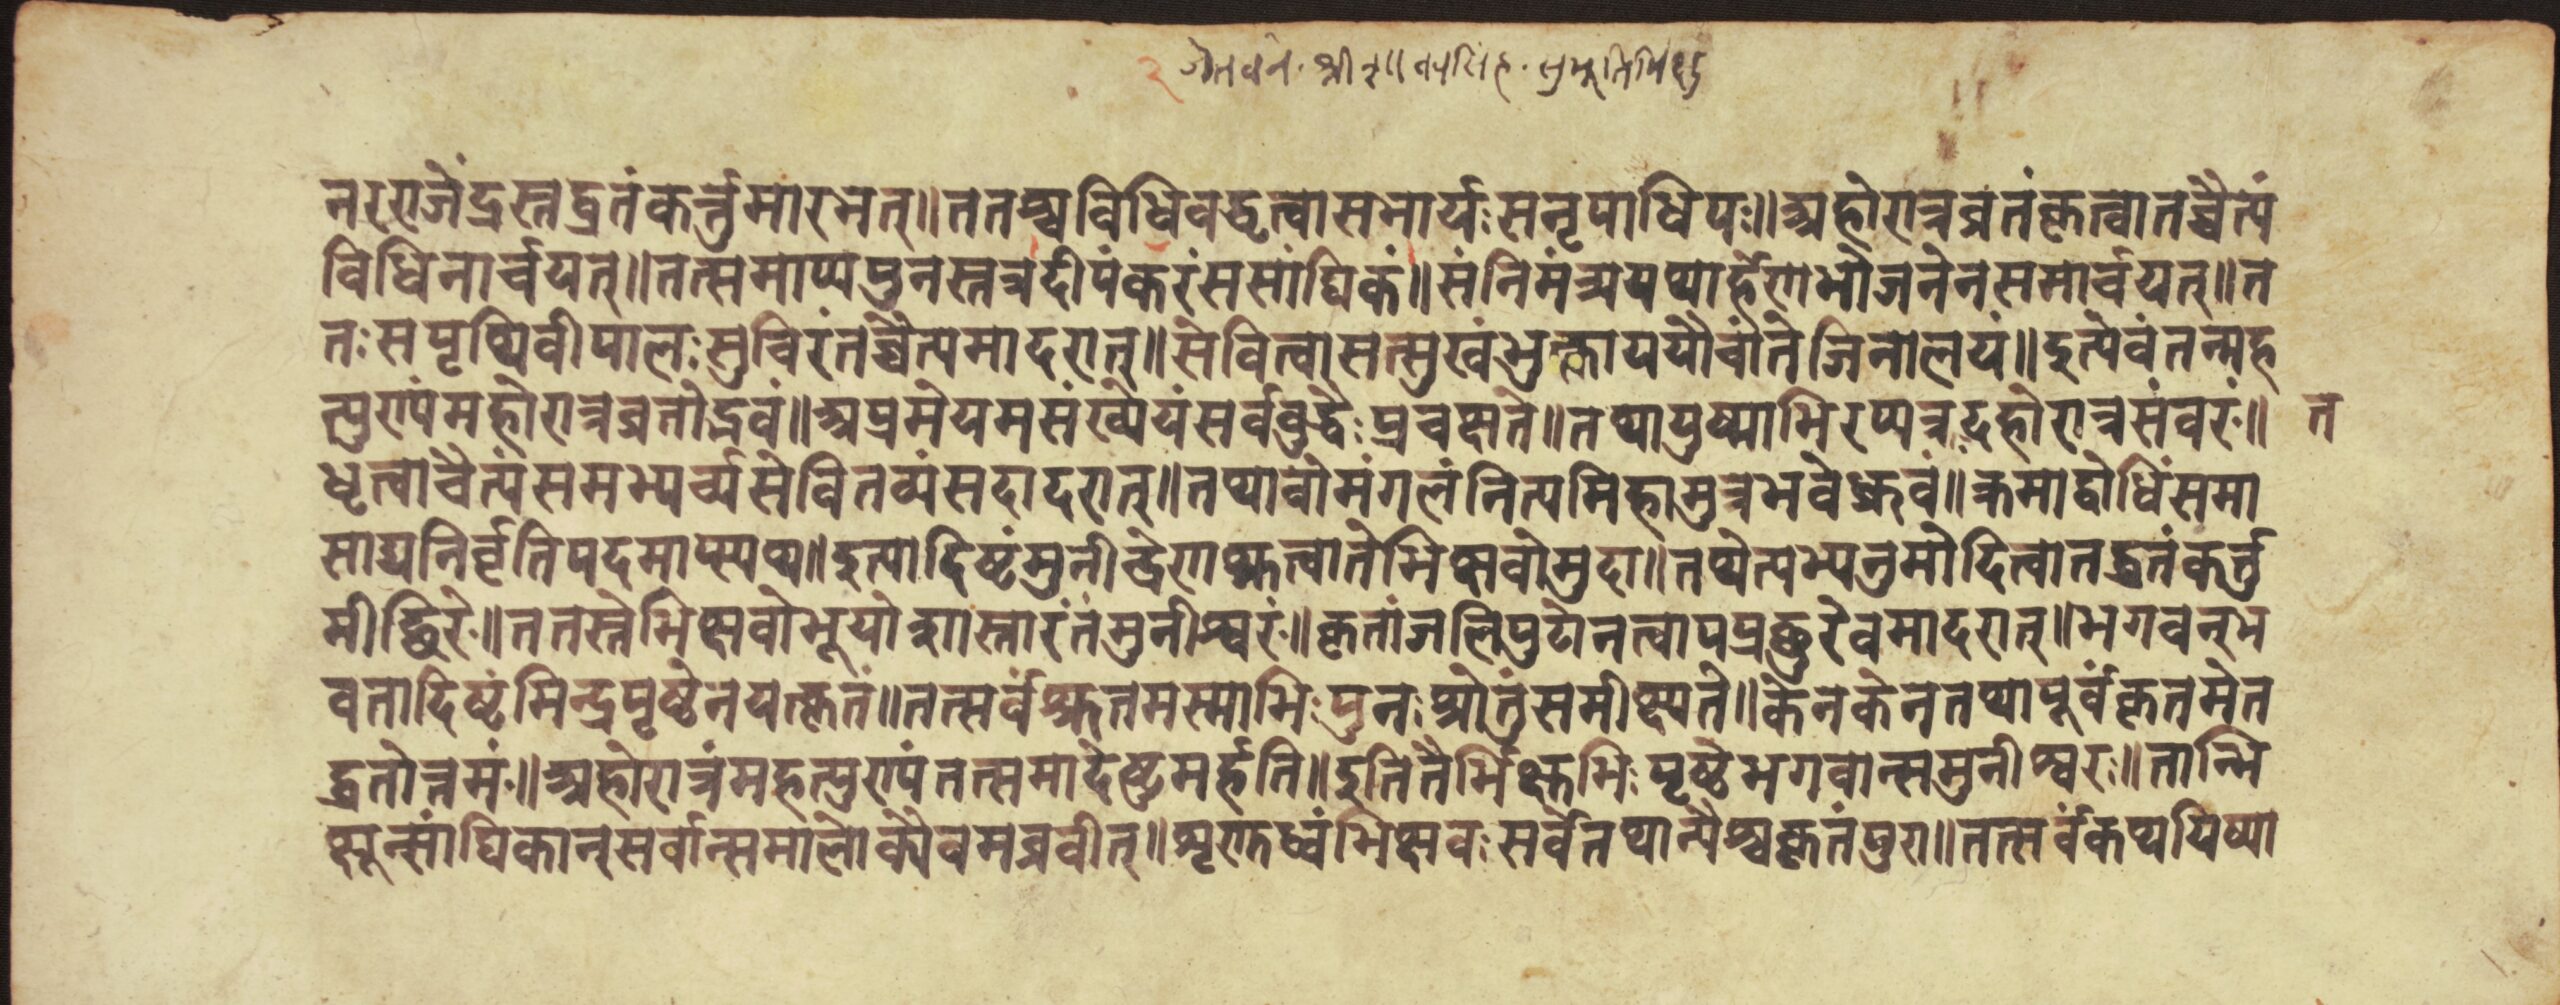 नरराजेंद्रस्तद्व्रतंकर्त्तुमारभेत्॥ततश्चविधिवद्धृत्वासभार्यःसनृपाधिपः॥अहोरात्रव्रतंकृत्वातच्चैत्यं
विधिनार्चयत्॥तत्समाप्यपुनस्तत्रदीपंकरंससांघिकं॥संनिमंत्र्ययथार्हेणभोजनेनसमार्चयत्॥त
तःसपृथिवीपालःसुचिरंतच्चैत्यमादरात्॥सेवित्वासत्सुखंभुक्त्वाययौचांतेजिनालयं॥इत्येवंतन्मह
त्पुण्यमहोरात्रव्रतोद्भवं॥अप्रमेयमसंख्येयंसर्वबुद्धैःप्रचक्षते॥तथायुष्माभिरप्यत्रदहोरात्रसंवरं॥ त
धृत्वाचैत्यंसमभ्यर्च्यसेवितव्यंसदादरात्॥तथावोमंगलंनित्यमिहामुत्रभवेध्रुवं॥क्रमाद्बोधिंसमा
साद्यनिर्वृतिपदमाप्स्यथ॥इत्यादिष्टंमुनीन्द्रेणश्रुत्वातेभिक्षवोमुदा॥तथेत्यभ्यनुमोदित्वातद्व्रतंकर्त्तु
मीच्छिरे॥ततस्तेभिक्षवोभूयोशास्तारंतंमुनीश्वरं॥कृतांजलिपुटोनत्वापप्रच्छुरेवमादरात्॥भगवन्भ
वतादिष्टंमिन्द्रपृष्ठेनयत्कृतं॥तत्सर्वंश्रुतमस्माभिःपुनःश्रोतुंसमीक्ष्यते॥केनकेनतथापूर्वंकृतमेत
द्व्रतोत्तमं॥अहोरात्रंमहत्पुण्यंतत्समादेष्टुमर्हति॥इतितैर्भिक्षुभिःपृष्ठेभगवान्समुनीश्वरः॥तान्भि
क्षून्सांघिकान्सर्वान्समालोक्यैवमब्रवीत्॥शृणुतध्वंभिक्षवःसर्वेतथान्यैश्चकृतंपुरा॥तत्सर्वंकथयिष्या